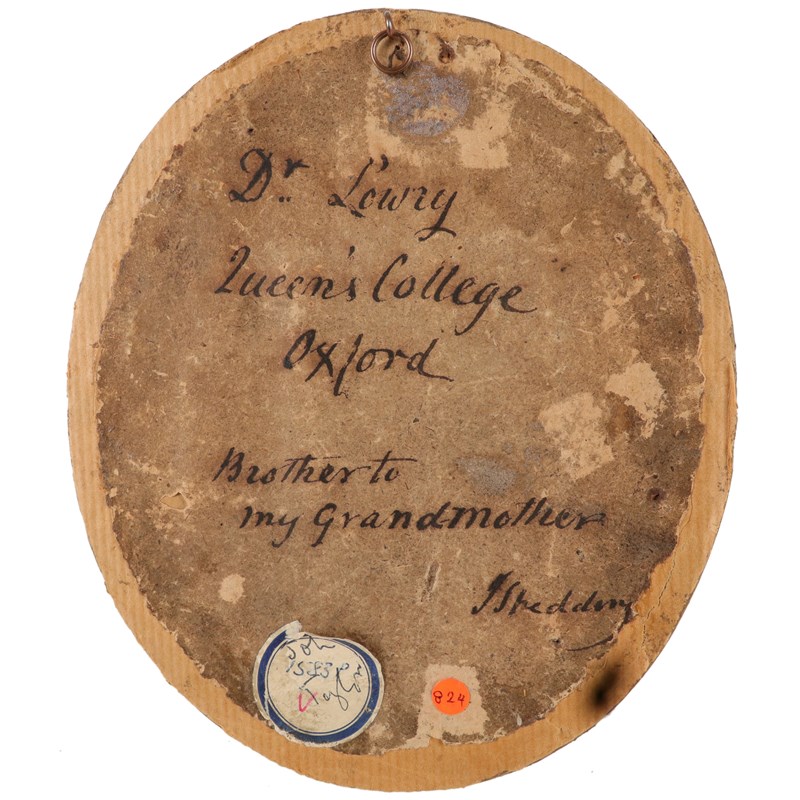 Dr. Lowry
Queen's College
Oxford
Brother to
my Grandmother
J Shedding
824